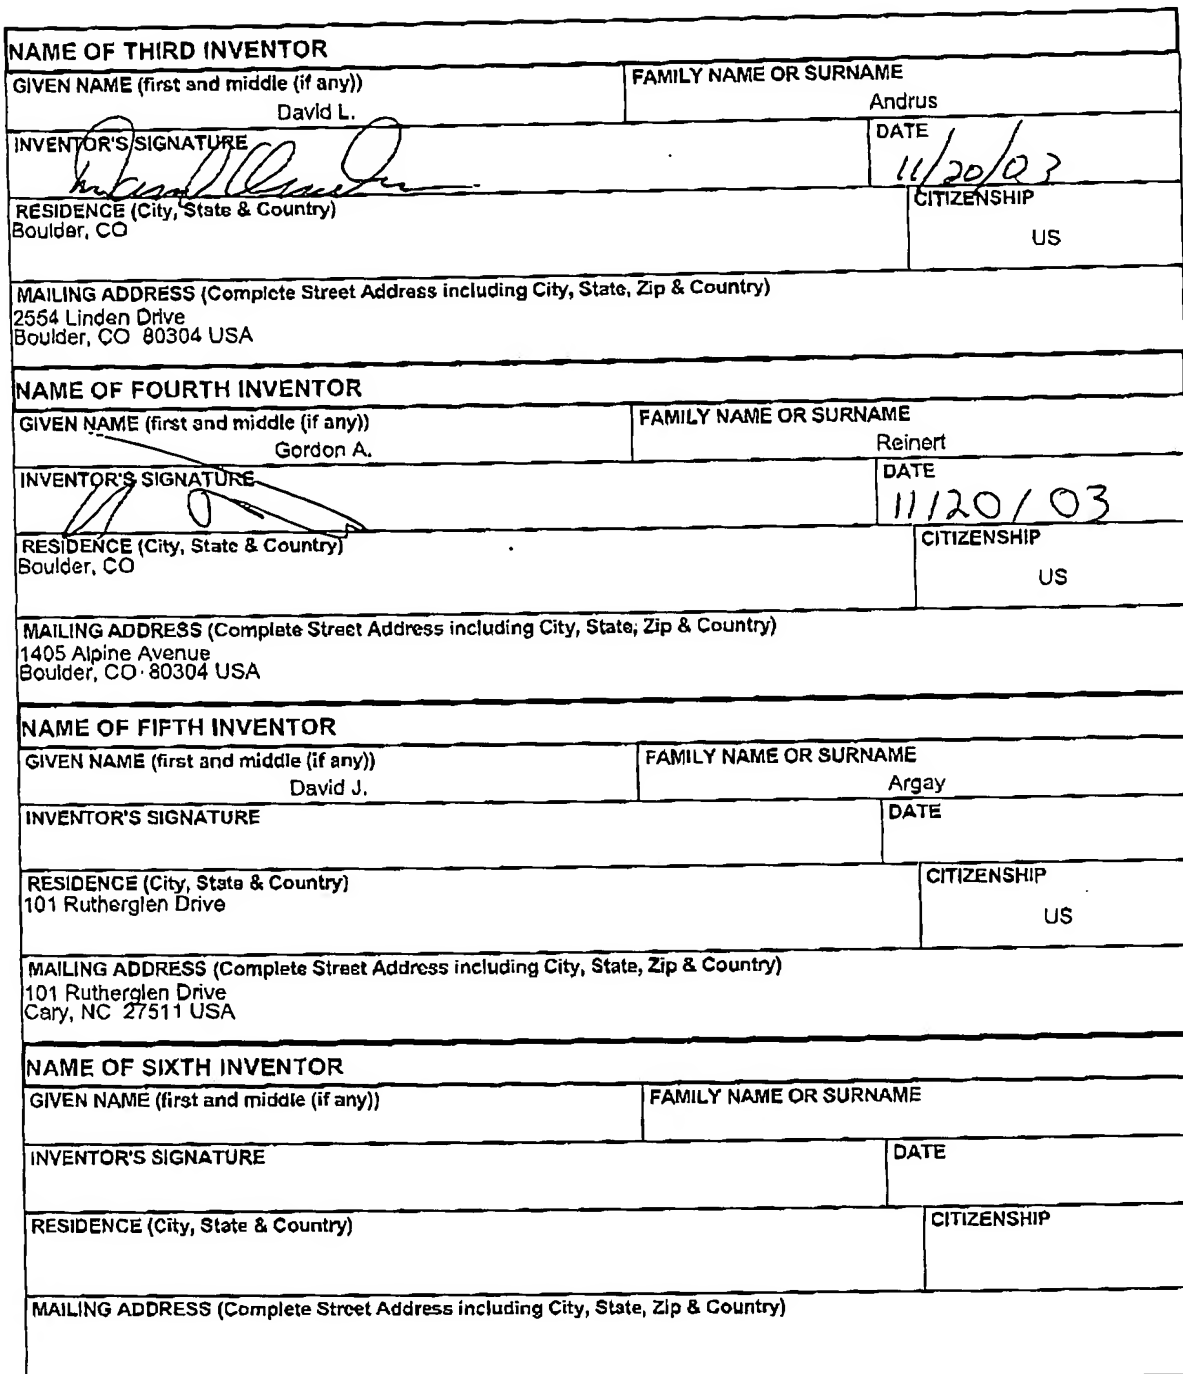 NAME OF THIRD INVENTOR
GIVEN NAME (first and middle (if any)) FAMILY NAME OR SURNAME
David L. Andrus
INVENTOR'S SIGNATURE DATE
11/20/03
RESIDENCE (City, State & Country) CITIZENSHIP
Boulder, CO
US
MAILING ADDRESS (Complete Street Address including City, State, Zip & Country)
2554 Linden Drive
Boulder, CO 80304 USA
NAME OF FOURTH INVENTOR
GIVEN NAME (first and middle (if any)) FAMILY NAME OR SURNAME
Gordon A. Reinert
INVENTOR'S SIGNATURE DATE
11/20/03
RESIDENCE (City, State & Country) CITIZENSHIP
Boulder, CO
US
MAILING ADDRESS (Complete Street Address including City, State, Zip & Country)
1405 Alpine Avenue
Boulder, CO 80304 USA
NAME OF FIFTH INVENTOR
GIVEN NAME (first and middle (if any)) FAMILY NAME OR SURNAME
David J. Argay
INVENTOR'S SIGNATURE DATE
RESIDENCE (City, State & Country) CITIZENSHIP
101 Rutherglen Drive
US
MAILING ADDRESS (Complete Street Address including City, State, Zip & Country)
101 Rutherglen Drive
Cary, NC 27511 USA
NAME OF SIXTH INVENTOR
GIVEN NAME (first and middle (if any)) FAMILY NAME OR SURNAME
INVENTOR'S SIGNATURE DATE
RESIDENCE (City, State & Country) CITIZENSHIP
MAILING ADDRESS (Complete Street Address including City, State, Zip & Country)